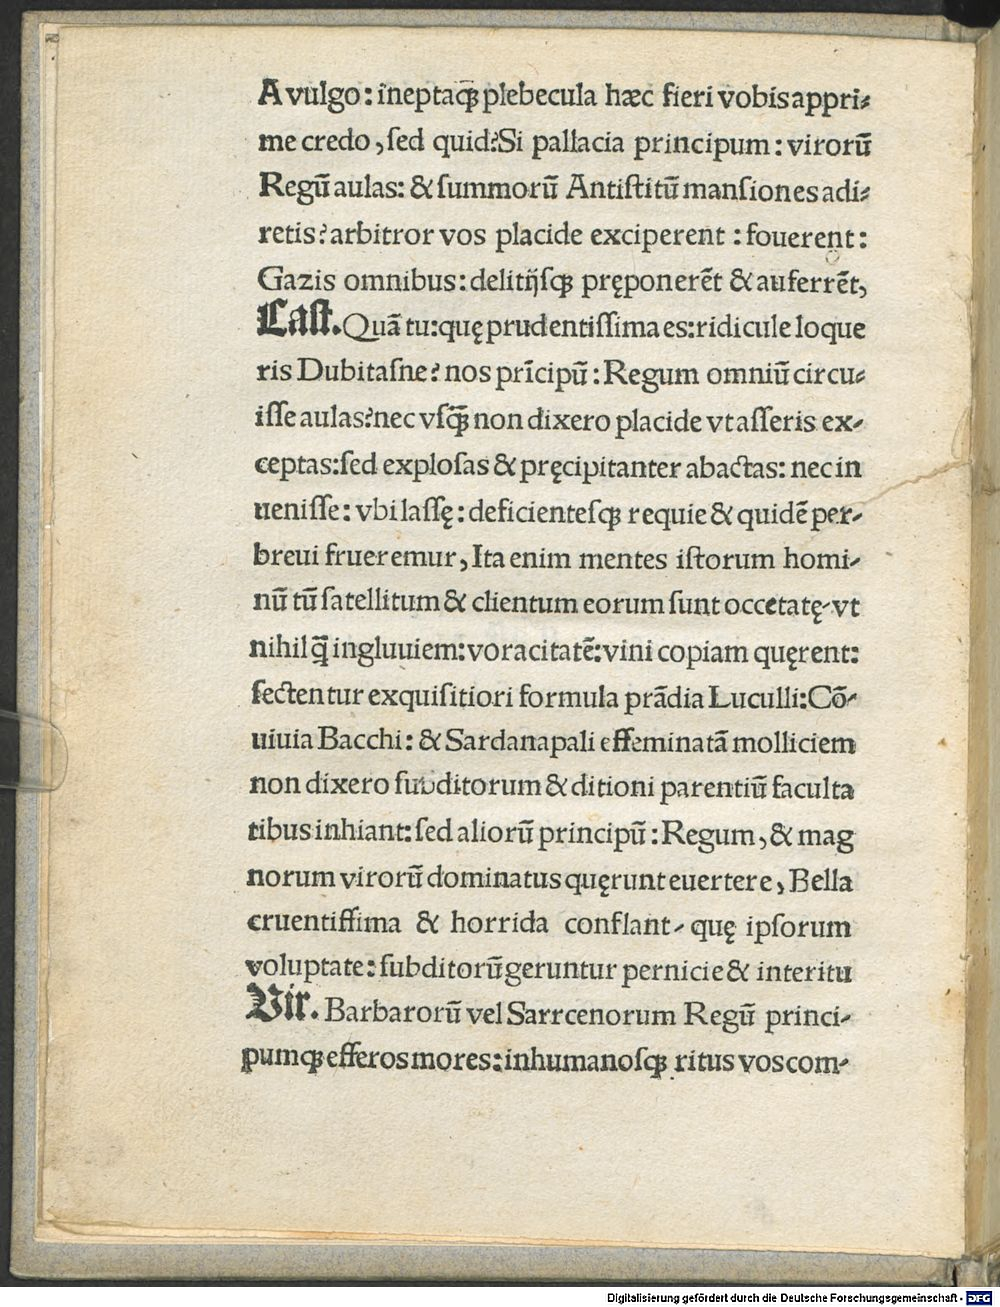 A vulgo: ineptaqꝫ plebecula hæc fieri vobis appri⸗
me credo, ſed quid? Si pallacia principum: virorū
Regū aulas: & ſummorū Antiſtitū manſiones adi⸗
retis? arbitror vos placide exciperent: fouerent:
Gazis omnibus: delitijſqꝫ pręponerēt & auferrēt,
Caſt. Quā tu: quę prudentiſſima es: ridicule loque
ris Dubitaſne? nos prīcipū: Regum omniū circu⸗
iſſe aulas? nec vſqꝫ̄ non dixero placide vt aſſeris ex⸗
ceptas: ſed exploſas & pręcipitanter abactas: nec in
ueniſſe: vbi laſſę: deficienteſqꝫ requie & quidē per⸗
breui frueremur, Ita enim mentes iſtorum homi⸗
nū tū ſatellitum & clientum eorum ſunt occetatę⸗ vt
nihil q̄ ingluuiem: voracitatē: vini copiam quęrent:
ſectentur exquiſitiori formula prādia Luculli: Cō⸗
uiuia Bacchi: & Sardanapali effeminatā molliciem
non dixero ſubditorum & ditioni parentiū faculta
tibus inhiant: ſed aliorū principū: Regum, & mag
norum virorū dominatus quęrunt euertere, Bella
cruentiſſima & horrida conflant⸗ quę ipſorum
voluptate: ſubditorū geruntur pernicie & interitu
Vir. Barbarorū vel Sarrcenorum Regū princi⸗
pumqꝫ efferos mores: inhumanoſqꝫ ritus vos com⸗
Digitalisierung gefördert durch die Deutsche Forschungsgemeinschaft - DFG